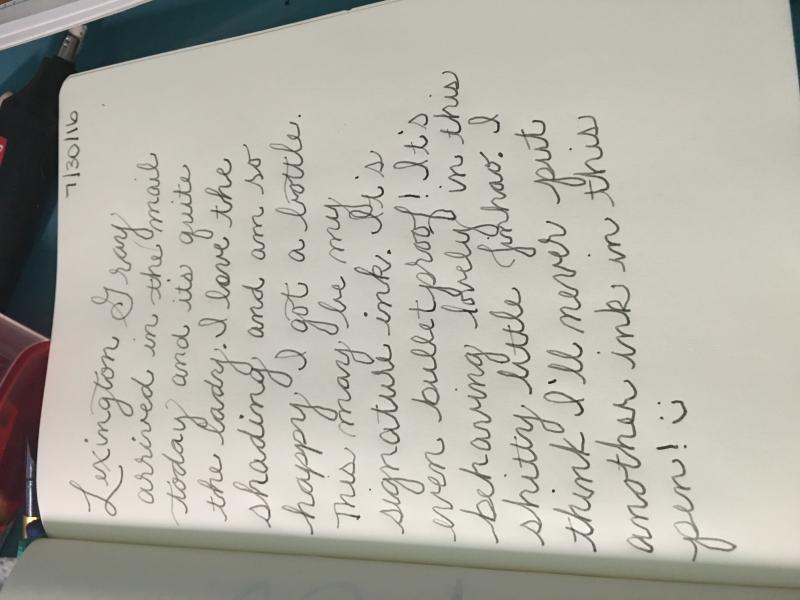 7/30/16
Lexington Gray
arrived in the mail
today and its quite
the lady. I love the
shading and am so
happy I got a bottle.
This may be my
signature ink. It is
even bulletproof! It is
behaving lovely in this
shitty little Jinhao. I
think I'll never put
another ink in this
pen! :)